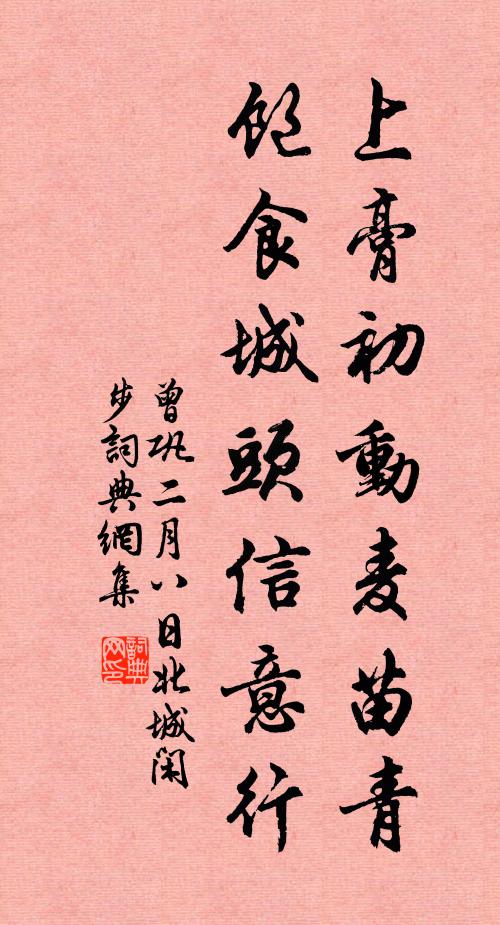 上膏初動麦苗青
飽食城頭信意行
曾巩二月八日北城閑
步詞典網集
詞典网印